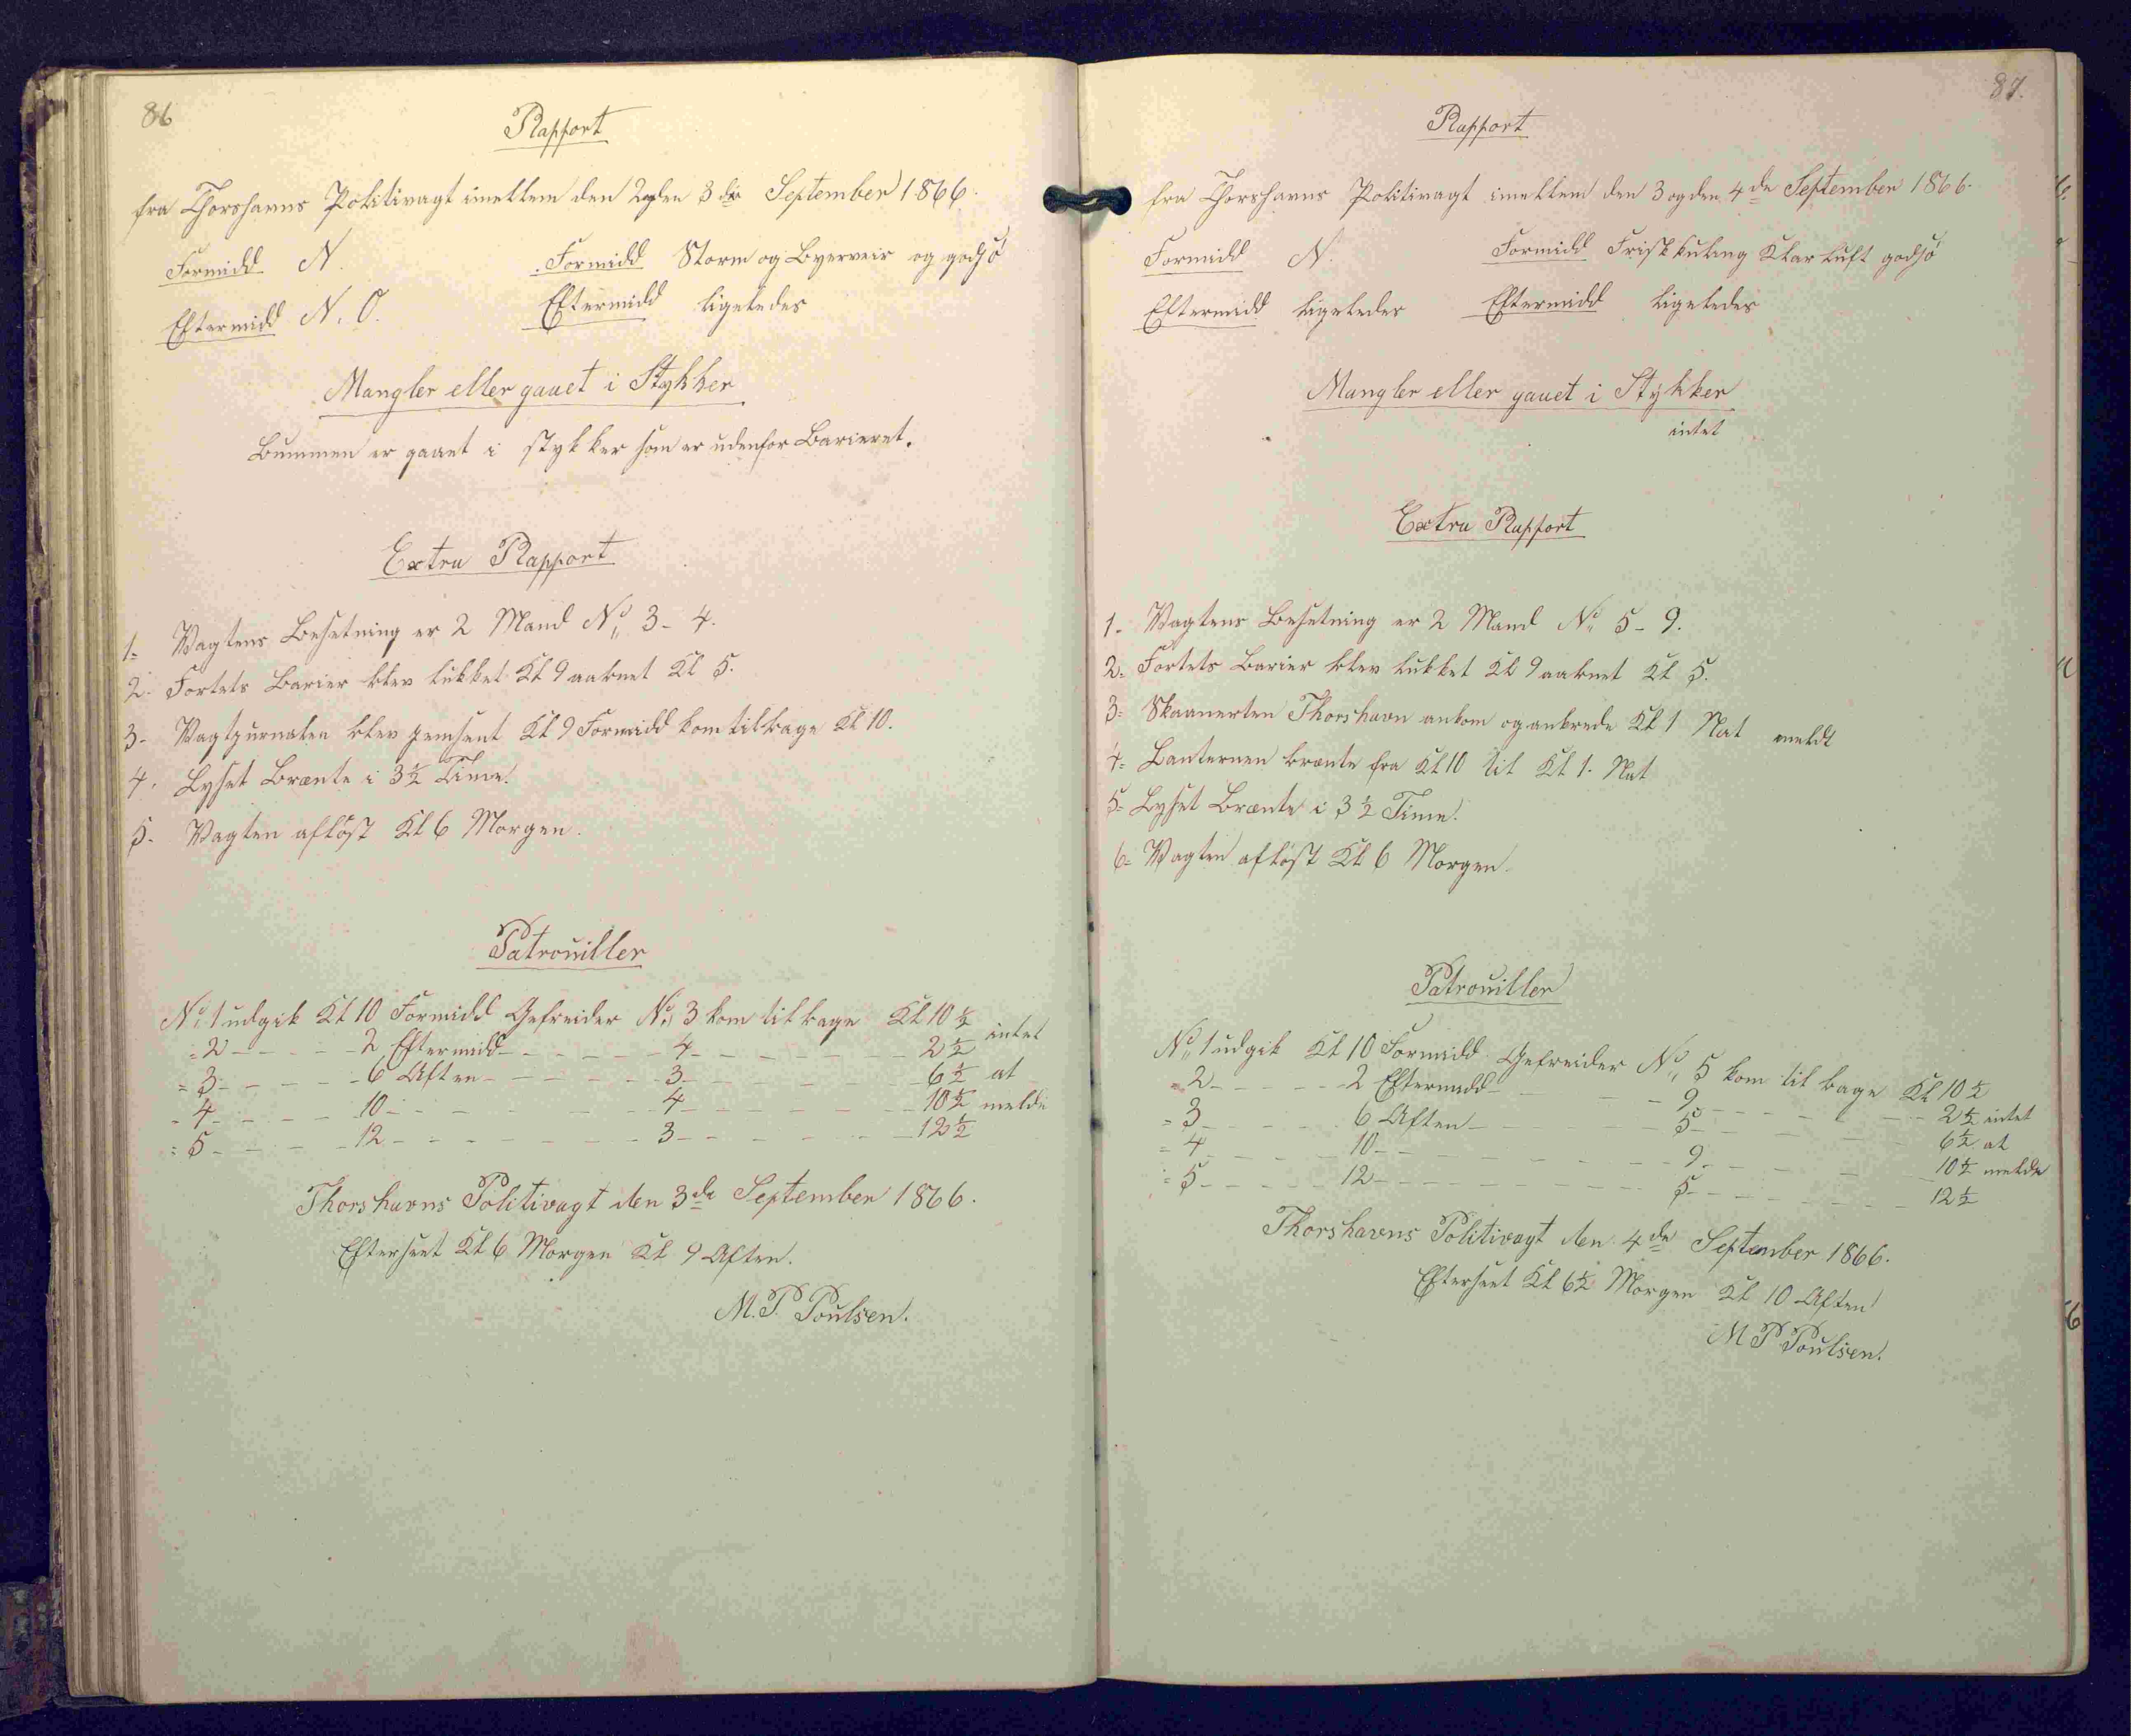 86
Rapport
fra Thorshavns Politivagt imellem den 2 og den 3die September 1866.
Formidd N. Formidd Storm og Byerveir og god Sö
Eftermidd N. O. Eftermidd ligeledes
Mangler eller gaaet i Stykker
Bummen er gaaet i stykker som er udenfor Barieret.
Extra Rapport
1. Vagtens Besetning er 2 Mand No. 3 - 4.
2. Fortets Barier blev lukket Kl 9 aabnet Kl 5.
3. Vagtjurnalen blev gemsent Kl 9 Formidd kom tilbage Kl 10.
4. Lyset Brænte i 3½ Time.
5. Vagten aflöst Kl 6 Morgen.
Patrouiller
No. 1 udgik Kl 10 Formidd Gefreider No. 3 kom tilbage Kl 10½ intet
= 2 - - - - 2 Eftermidd - - - - - 4 - - - - - 2½
= 3 - - - - 6 Aften - - - - - 3 - - - - - 6½ at
- 4 - - - - 10 - - - - - 4 - - - - - 10½ melde
= 5 - - - - 12 - - - - - 3 - - - - - 12½
Thorshavns Politivagt den 3de September 1866.
Efterseet Kl 6 Morgen Kl 9 Aften.
M. P. Poulsen.
87.
Rapport
fra Thorshavns Politivagt imellem den 3 og den 4de September 1866.
Formidd N. Formidd Frisk kuling Klar luft god Sö
Eftermidd ligeledes Eftermidd ligeledes
Mangler eller gaaet i Stykker
intet
Extra Rapport
1. Vagtens Besetning er 2 Mand No. 5 - 9.
2. Fortets Barier blev lukket Kl 9 aabnet Kl 5.
3. Skaanerten Thorshavn ankom og ankrede Kl 1 Nat meldt
4. Lanternen brænte fra Kl 10 til Kl 1. Nat
5. Lyset Brænte i 3½ Time.
6. Vagten aflöst Kl 6 Morgen.
Patrouiller
No. 1 udgik Kl 10 Formidd. Gefreider No. 5 kom tilbage Kl 10½
- 2 - - - - 2 Eftermidd - - - - 9 - - - - - 2½ intet
= 3 - - - - 6 Aften - - - - 5 - - - - - 6½ at
= 4 - - - - 10 - - - - - 9 - - - - - 10½ melde
= 5 - - - - 12 - - - - - 5 - - - - - 12½
Thorshavns Politivagt den 4de September 1866.
Efterseet Kl 6½ Morgen Kl 10 Aften
M P Poulsen.